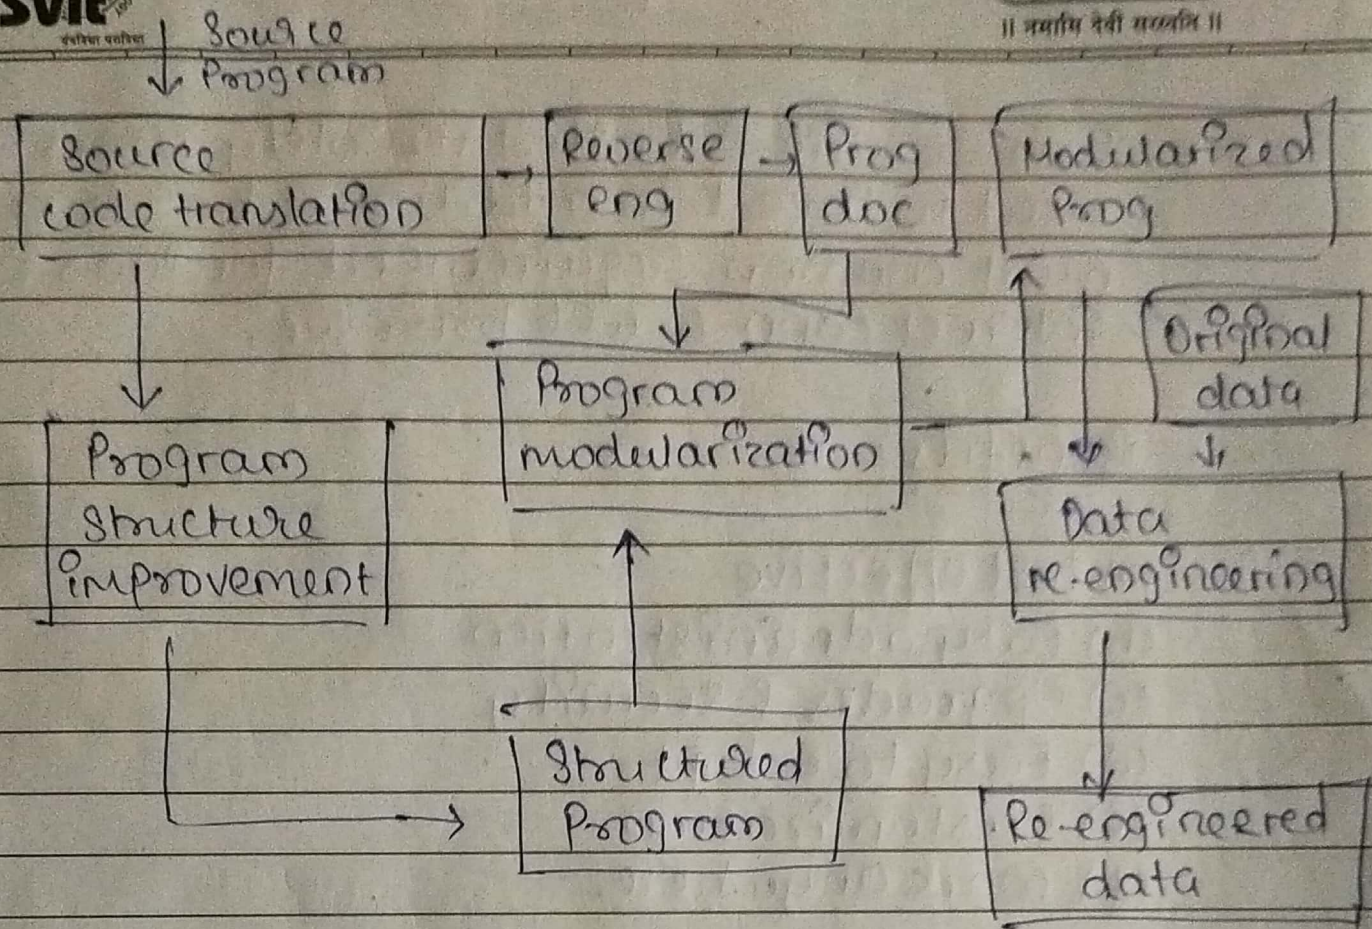 SVIT
|| नमामि देवी सरस्वति ||
Source
Program
Source
code translation
Reverse
eng
Prog
doc
Modularized
Prog
Original
data
Program
modularization
Program
Structure
improvement
Data
re-engineering
Structured
Program
Re-engineered
data